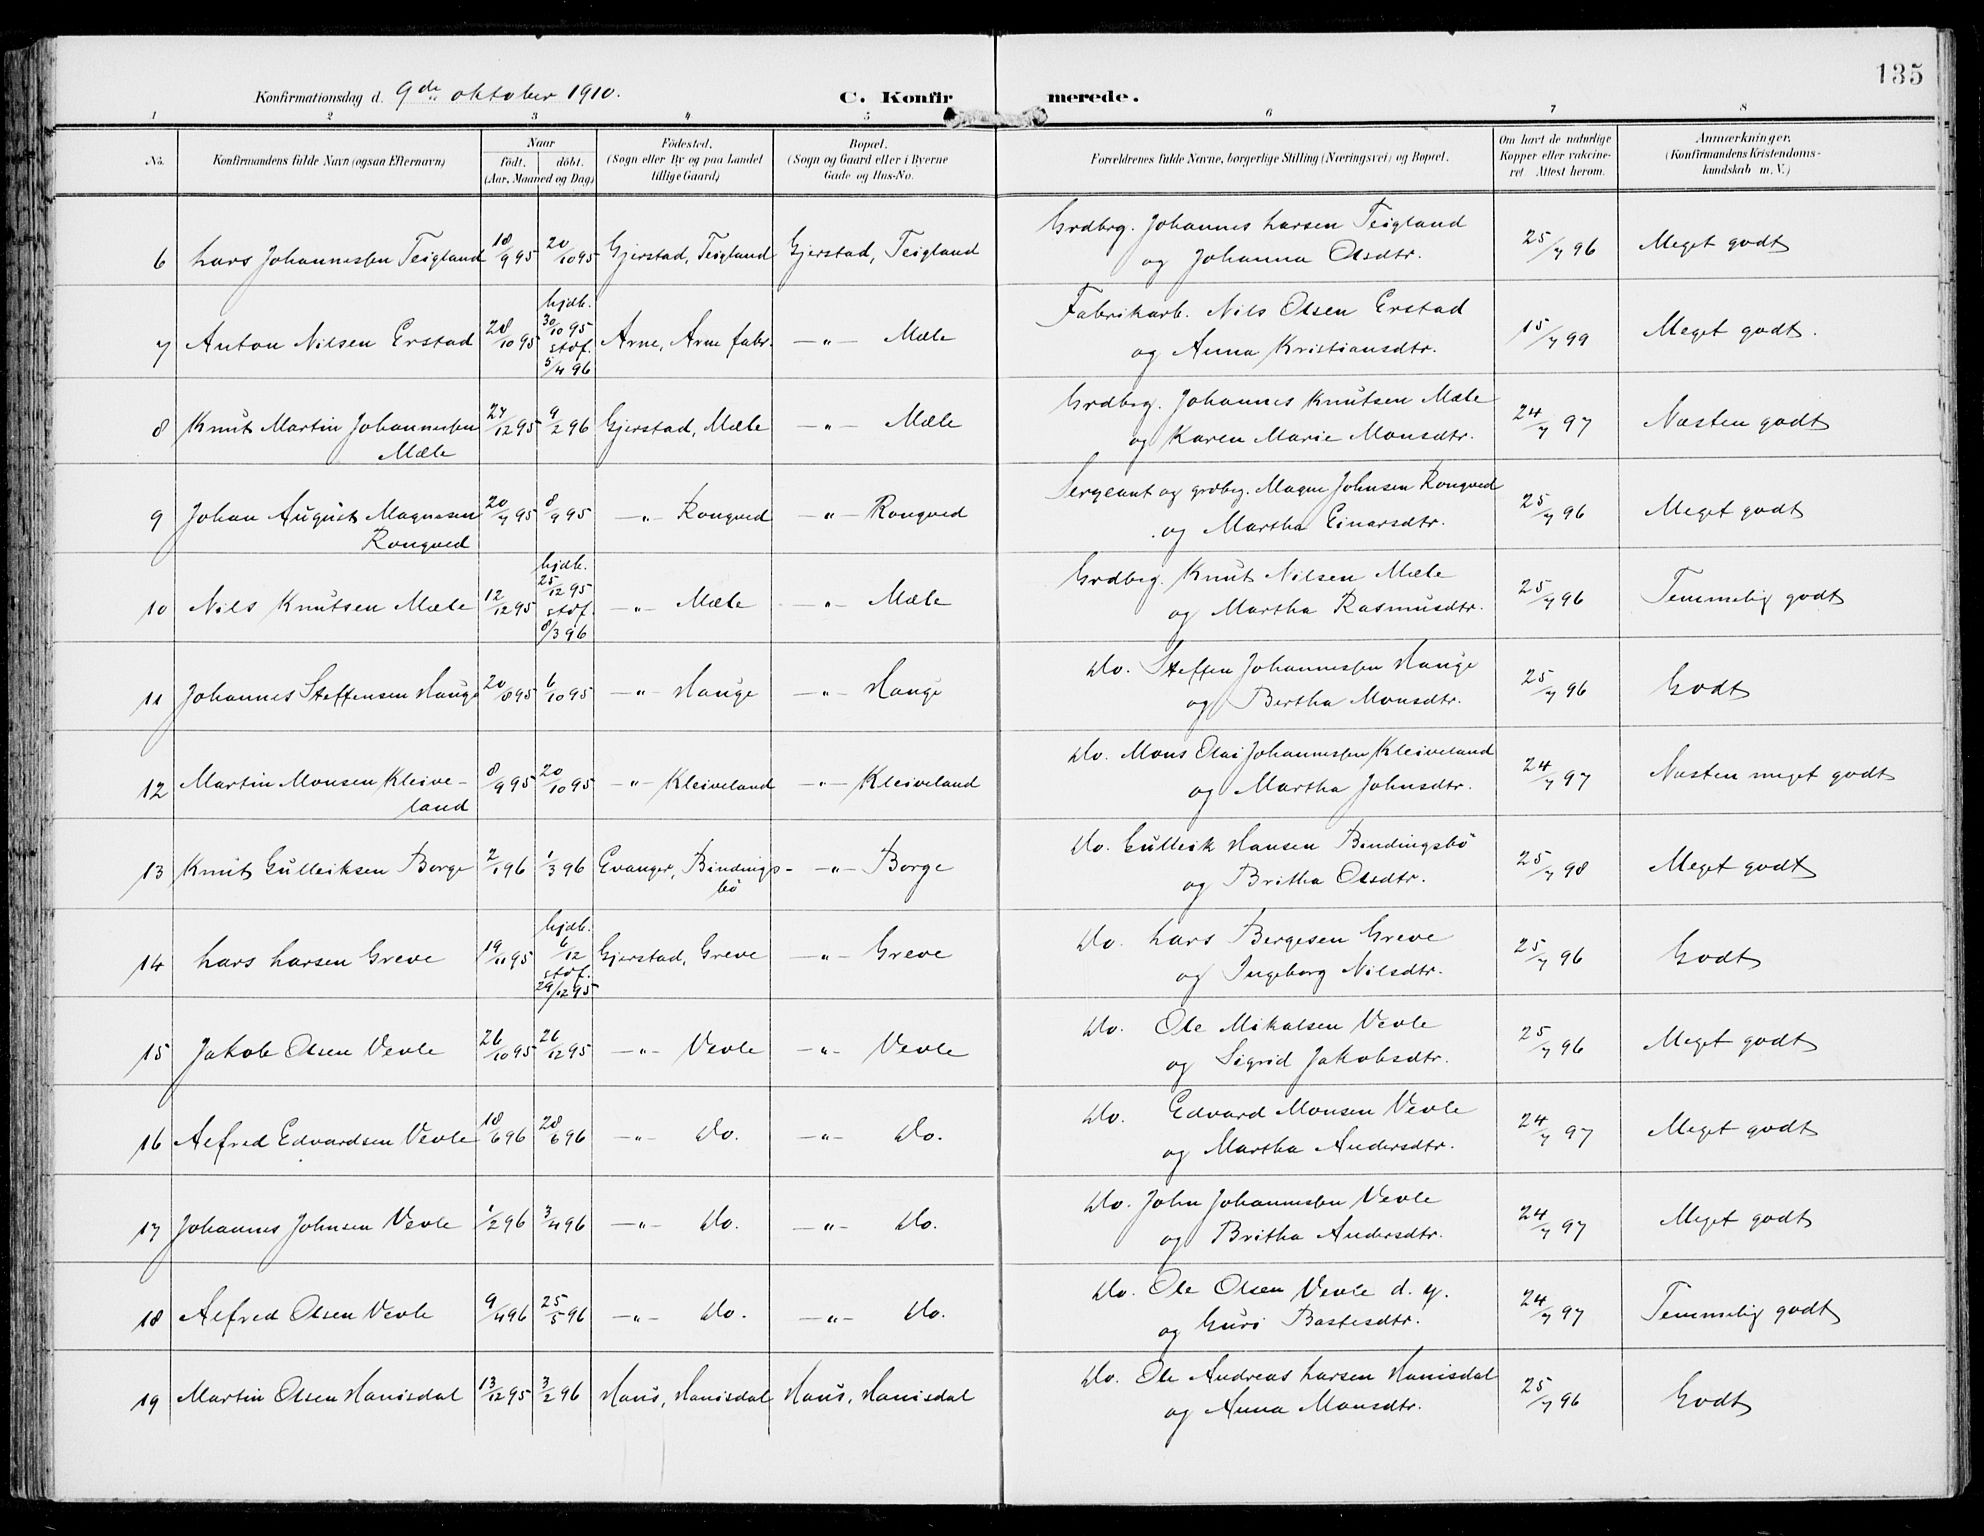 135
Konfirmationsdag d. 9de oktober 1910. C. Konfirmerede.
1 2 3 4 5 6 7 8
No. Konfirmandens fulde Navn (ogsaa Efternavn) Naar født. døbt. (Aar, Maaned og Dag) Fødested. (Sogn eller By og paa Landet tillige Gaard) Bopæl. (Sogn og Gaard eller i Byerne Gade og Hus-No. Forældrenes fulde Navne, borgerlige Stilling (Næringsvei) og Bopæl. Om havt de naturlige Kopper eller vakcineret. Attest herom. Anmærkninger. (Konfirmandens Kristendomskundskab m. V.)
6 Lars Johannessen Teigland 18/9 95 20/10 95 Gjerstad, Teigland Gjerstad, Teigland Grdbrg. Johannes Larsen Teigland og Johanna Olsdtr. 25/7 96 Meget godt
7 Anton Nilsen Erstad 28/10 95 hjdb. 30/10 95 stdf. 5/4 96 Arne, Arne fabr. —"— Mæle Fabrikarb. Nils Olsen Erstad og Anna Kristiansdtr. 15/7 99 Meget godt.
8 Knut Martin Johannessen Mæle 27/12 95 9/2 96 Gjerstad, Mæle —"— Mæle Grdbrg. Johannes Knutsen Mæle og Karen Marie Monsdtr. 24/7 97 Næsten godt
9 Johan August Magnesen Rongved 20/7 95 8/9 95 —"— Rongved —"— Rongved Sergeant og grdbrg. Magne Johnsen Rongved og Martha Einarsdtr. 25/7 96 Meget godt
10 Nils Knutsen Mæle 12/12 95 hjdb. 25/12 95 stdf. 8/3 96 —"— Mæle —"— Mæle Grdbrg. Knut Nilsen Mæle og Martha Rasmusdtr. 25/7 96 Temmelig godt
11 Johannes Steffensen Hauge 20/8 95 6/10 95 —"— Hauge —"— Hauge Do. Steffen Johannessen Hauge og Bertha Monsdtr. 25/7 96 Godt
12 Martin Monsen Kleiveland 8/9 95 20/10 95 —"— Kleiveland —"— Kleiveland Do. Mons Olai Johannessen Kleiveland og Martha Johnsdtr. 24/7 97 Næsten meget godt
13 Knut Gulleiksen Borge 2/1 96 1/3 96 Evanger, Bindingsbø —"— Borge Do. Gulleik Hansen Bindingsbø og Britha Olsdtr. 25/7 98 Meget godt
14 Lars Larsen Greve 19/11 95 hjdb. 6/12 stdf. 29/12 95 Gjerstad, Greve —"— Greve Do. Lars Bergesen Greve og Ingeborg Nilsdtr. 25/7 96 Godt
15 Jakob Olsen Vevle 26/10 95 26/12 95 —"— Vevle —"— Vevle Do. Ole Mikalsen Vevle og Sigrid Jakobsdtr. 25/7 96 Meget godt
16 Alfred Edvardsen Vevle 18/6 96 28/6 96 —"— Do. —"— Do. Do. Edvard Monsen Vevle og Martha Andersdtr. 24/7 97 Meget godt
17 Johannes Johnsen Vevle 1/2 96 3/4 96 —"— Do. —"— Do. Do. John Johannessen Vevle og Britha Andersdtr. 24/7 97 Meget godt
18 Alfred Olsen Vevle 9/4 96 25/5 96 —"— Do. —"— Do. Do. Ole Olsen Vevle d. y. og Guro Bastesdtr. 24/7 97 Temmelig godt
19 Martin Olsen Hanisdal 13/12 95 3/2 96 Haus, Hanisdal Haus, Hanisdal Do. Ole Andreas Larsen Hanisdal og Anna Monsdtr. 25/7 96 Godt